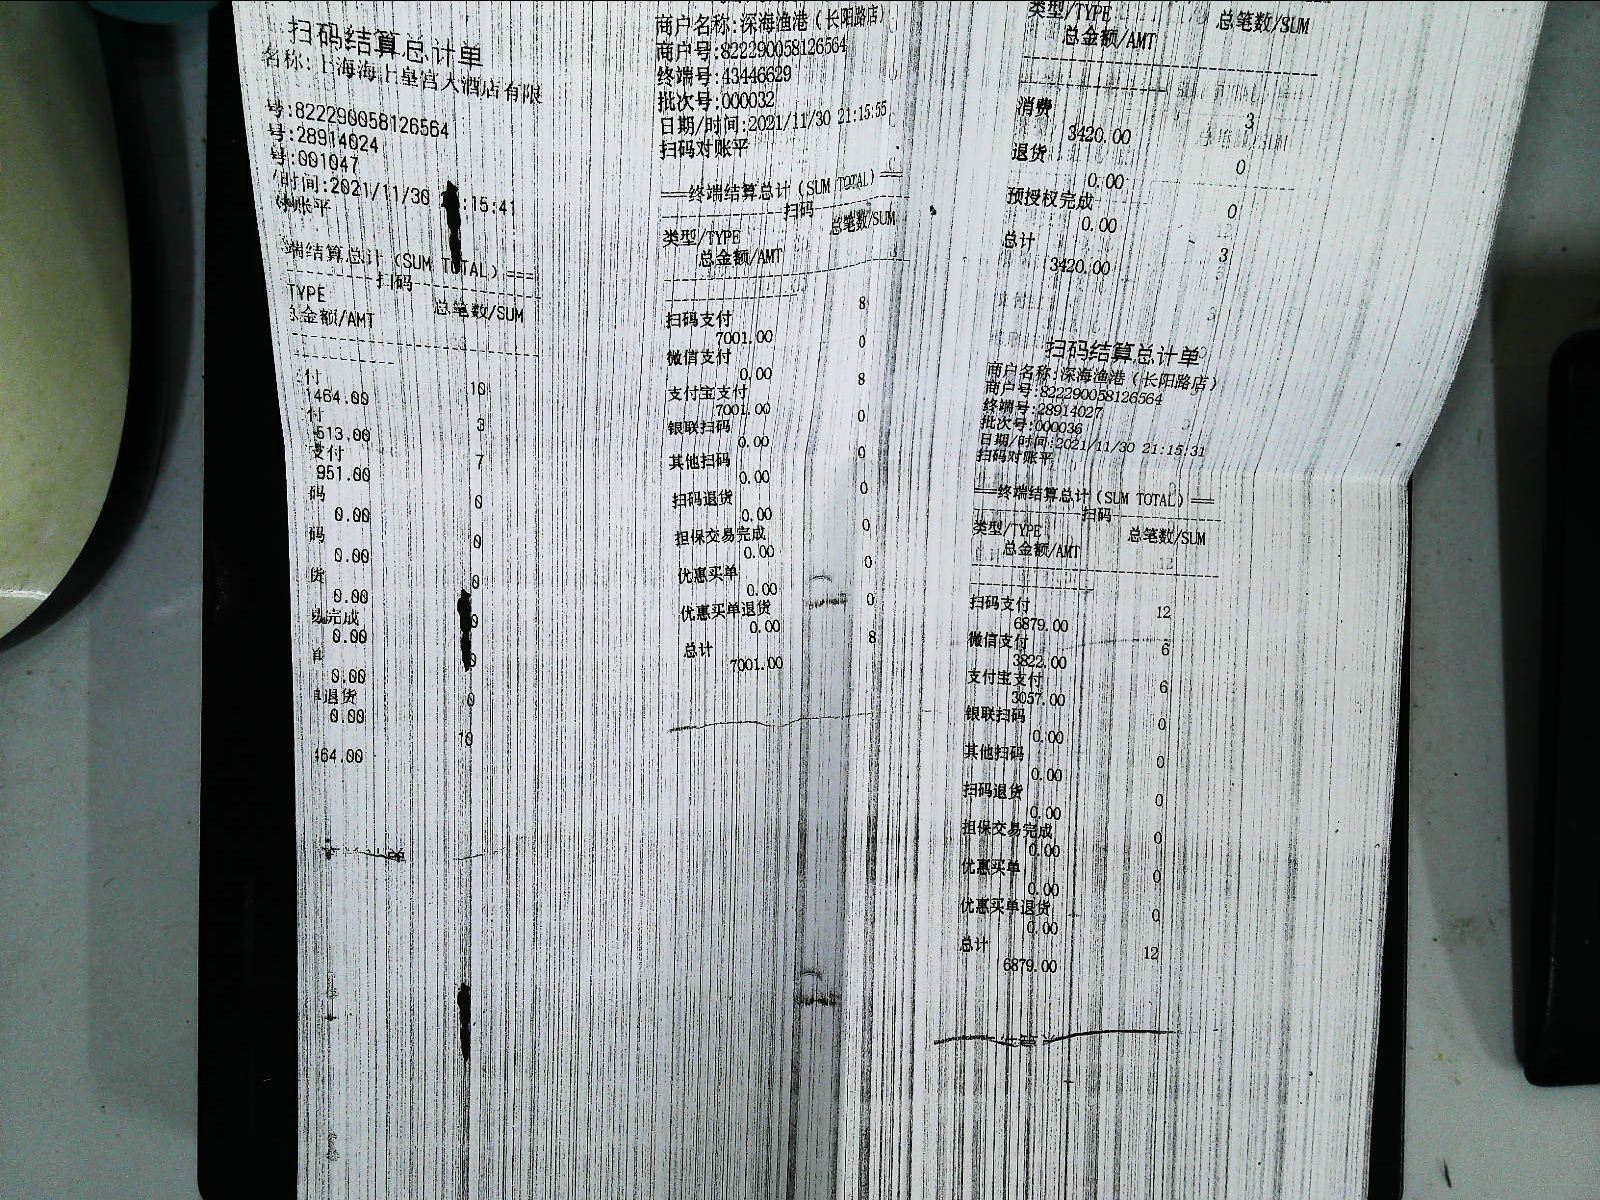 扫码结算总计单
名称:上海海上皇宫大酒店有限
号:822290058126564
号:28914024
号:001047
/时间:2021/11/30 :15:41
账平
端结算总计(SUM TOTAL)===
扫码
TYPE 总笔数/SUM
总金额/AMT
付 10
1464.00
付 3
513.00
支付 7
951.00
码 0
0.00
码 0
0.00
货 0
0.00
易完成 0
0.00
单 0
0.00
单退货 0
0.00
10
464.00
商户名称:深海渔港(长阳路店)
商户号:822290058126564
终端号:43446629
批次号:000032
日期/时间:2021/11/30 21:15:55
扫码对账平
===终端结算总计(SUM TOTAL)===
扫码
类型/TYPE 总笔数/SUM
总金额/AMT
扫码支付 8
7001.00
微信支付 0
0.00
支付宝支付 8
7001.00
银联扫码 0
0.00
其他扫码 0
0.00
扫码退货 0
0.00
担保交易完成 0
0.00
优惠买单 0
0.00
优惠买单退货 0
0.00
总计 8
7001.00
类型/TYPE 总笔数/SUM
总金额/AMT
消费 3
3420.00
退货 0
0.00
预授权完成 0
0.00
总计 3
3420.00
扫码结算总计单
商户名称:深海渔港(长阳路店)
商户号:822290058126564
终端号:28914027
批次号:000036
日期/时间:2021/11/30 21:15:31
扫码对账平
===终端结算总计(SUM TOTAL)===
扫码
类型/TYPE 总笔数/SUM
总金额/AMT
扫码支付 12
6879.00
微信支付 6
3822.00
支付宝支付 6
3057.00
银联扫码 0
0.00
其他扫码 0
0.00
扫码退货 0
0.00
担保交易完成 0
0.00
优惠买单 0
0.00
优惠买单退货 0
0.00
总计 12
6879.00